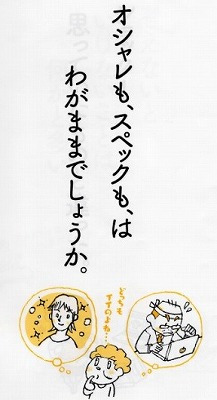 オシャレも、スペックも、は
わがままでしょうか。
どっちも
イイのよね…